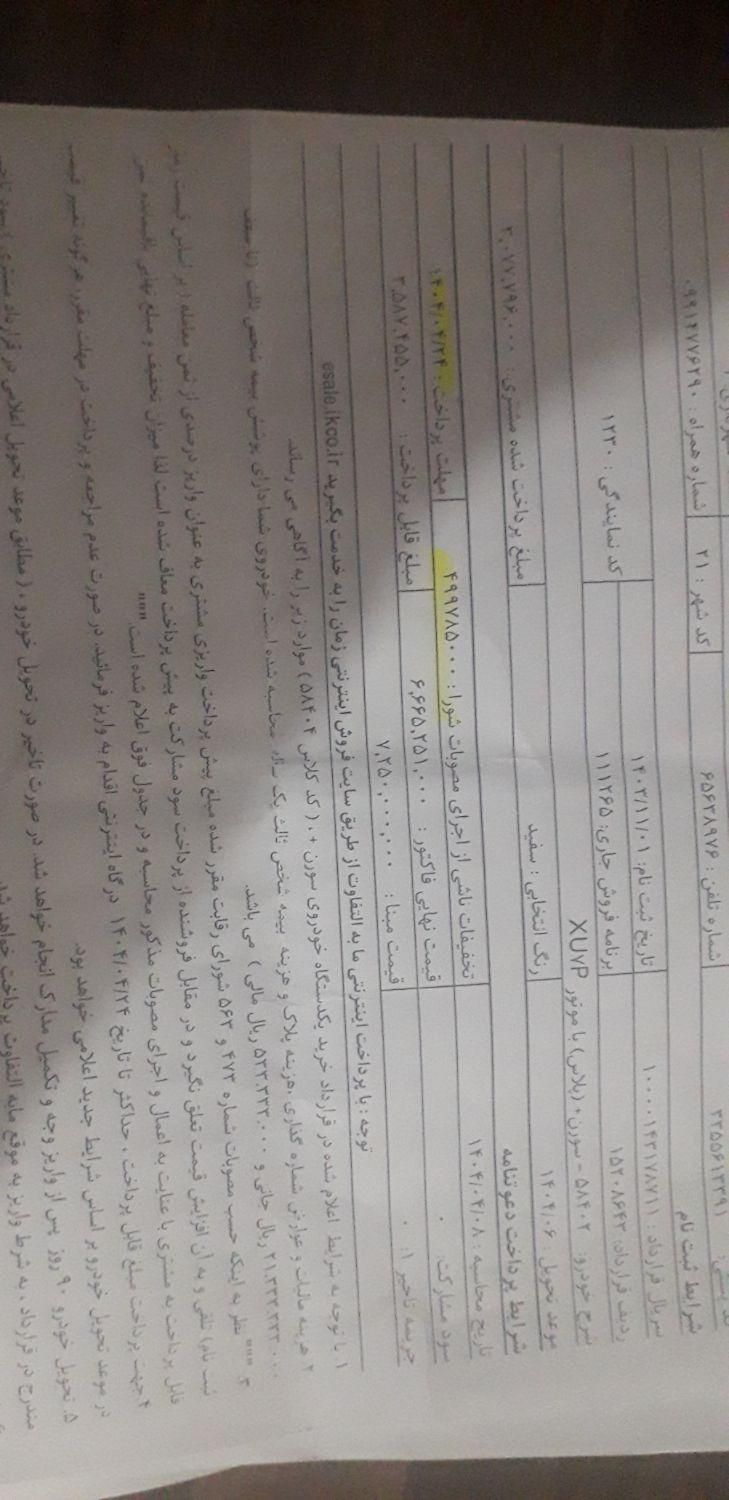 کد پستی: ۳۳۵۵۶۱۳۳۹۱ شماره تلفن : ۶۵۶۳۸۹۷۶ کد شهر : ۲۱ شماره همراه : ۰۹۹۱۲۷۷۶۲۹۰
شرایط ثبت نام
سریال قرارداد : ۱۰۰۰۰۱۴۳۱۷۸۷۱۱ تاریخ ثبت نام: ۱۴۰۳/۱۱/۰۱
ردیف قرارداد: ۱۵۲۰۸۶۴۳ برنامه فروش جاری: ۱۱۱۲۶۵ کد نمایندگی : ۱۲۳۰
شرح خودرو: ۵۸۴۰۲ - سورن+ (پلاس) با موتور XU۷P
موعد تحویل : ۱۴۰۴/۰۶ رنگ انتخابی : سفید مبلغ پرداخت شده مشتری : ۳,۰۷۷,۷۹۶,۰۰۰
شرایط پرداخت دعوتنامه
تاریخ محاسبه : ۱۴۰۴/۰۴/۰۸ تخفیفات ناشی از اجرای مصوبات شورا : ۴۹۹۷۸۵۰۰۰ مهلت پرداخت : ۱۴۰۴/۰۴/۲۴
سود مشارکت: ۰ قیمت نهایی فاکتور : ۶,۶۶۵,۲۵۱,۰۰۰ مبلغ قابل پرداخت : ۳,۵۸۷,۴۵۵,۰۰۰
جریمه تاخیر ۱: ۰ قیمت مبنا : ۷,۲۵۰,۰۰۰,۰۰۰
توجه : با پرداخت اینترنتی ما به التفاوت از طریق سایت فروش اینترنتی زمان را به خدمت بگیرید esale.ikco.ir
۱. با توجه به شرایط اعلام شده در قرارداد خرید یکدستگاه خودروی سورن +، ( کد کلاس ۵۸۴۰۲ ) موارد زیر را به آگاهی می رساند.
۲ هزینه مالیات و عوارض شماره گذاری ،هزینه پلاک و هزینه بیمه شخص ثالث یک ساله محاسبه شده است. خودروی شما دارای پوشش بیمه شخص ثالث (تا سقف
۲۱.۳۳۳.۳۳۳.۰۰۰ ریال جانی و ۵۳۳.۳۳۳.۰۰۰ ریال مالی ) می باشد.
۳. """ نظر به اینکه حسب مصوبات شماره ۴۷۳ و ۵۶۳ شورای رقابت مقرر شده مبلغ پیش پرداخت واریزی مشتری به عنوان واریز درصدی از ثمن معامله ( بر اساس قیمت زمان
ثبت نام) تلقی و به آن افزایش قیمت تعلق نگیرد و در مقابل فروشنده از پرداخت سود مشارکت به پیش پرداخت معاف شده است لذا میزان تخفیف و مبلغ نهایی باقیمانده
قابل پرداخت به مشتری با عنایت به اعمال و اجرای مصوبات مذکور محاسبه و در جدول فوق اعلام شده است."""
۴.جهت پرداخت مبلغ قابل پرداخت ، حداکثر تا تاریخ ۱۴۰۴/۰۴/۲۴ درگاه اینترنتی اقدام به واریز فرمائید. در صورت عدم مراجعه و پرداخت در مهلت مقرر، هر گونه تغییر قیمت
در موعد تحویل خودرو بر اساس شرایط جدید اعلامی خواهد بود.
۵. تحویل خودرو ۹۰ روز پس از واریز وجه و تکمیل مدارک انجام خواهد شد. در صورت تاخیر در تحویل خودرو ، ( مطابق موعد تحویل اعلامی در قرارداد مشتری )
مندرج در قرارداد ، به شرط واریز به موقع مابه التفاوت پرداخت خواهد شد.